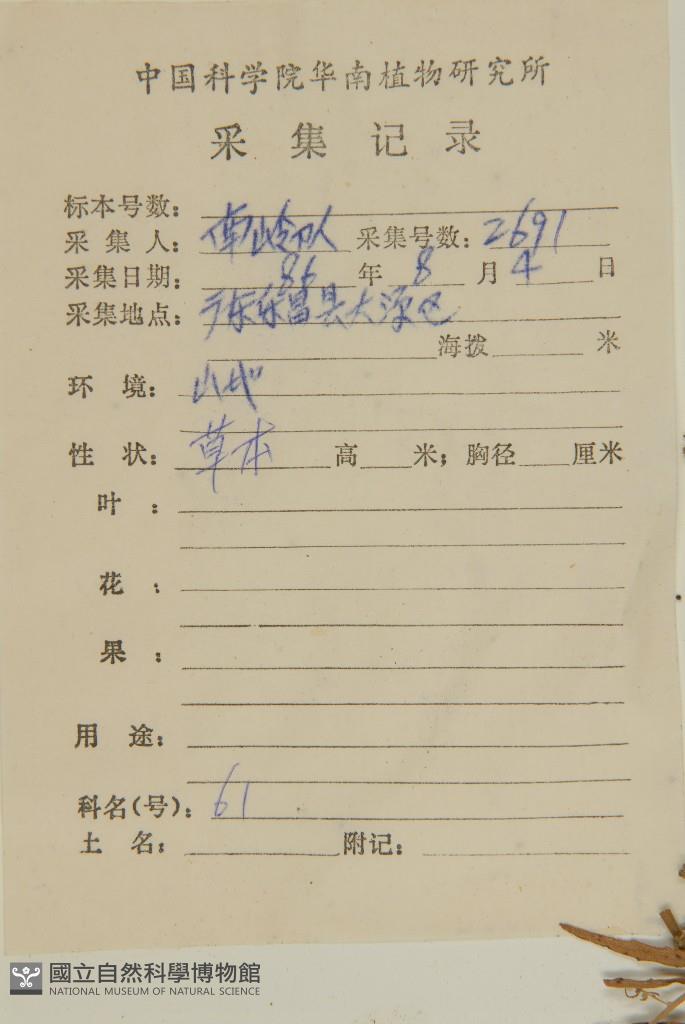 中国科学院华南植物研究所
采集记录
标本号数：
采集人：南岭队 采集号数：2691
采集日期：86年8月4日
采集地点：广东乐昌县大源
海拨 米
环境：山地
性状：草本 高 米；胸径 厘米
叶：
花：
果：
用途：
科名(号)：61
土名： 附记：
國立自然科學博物館
NATIONAL MUSEUM OF NATURAL SCIENCE